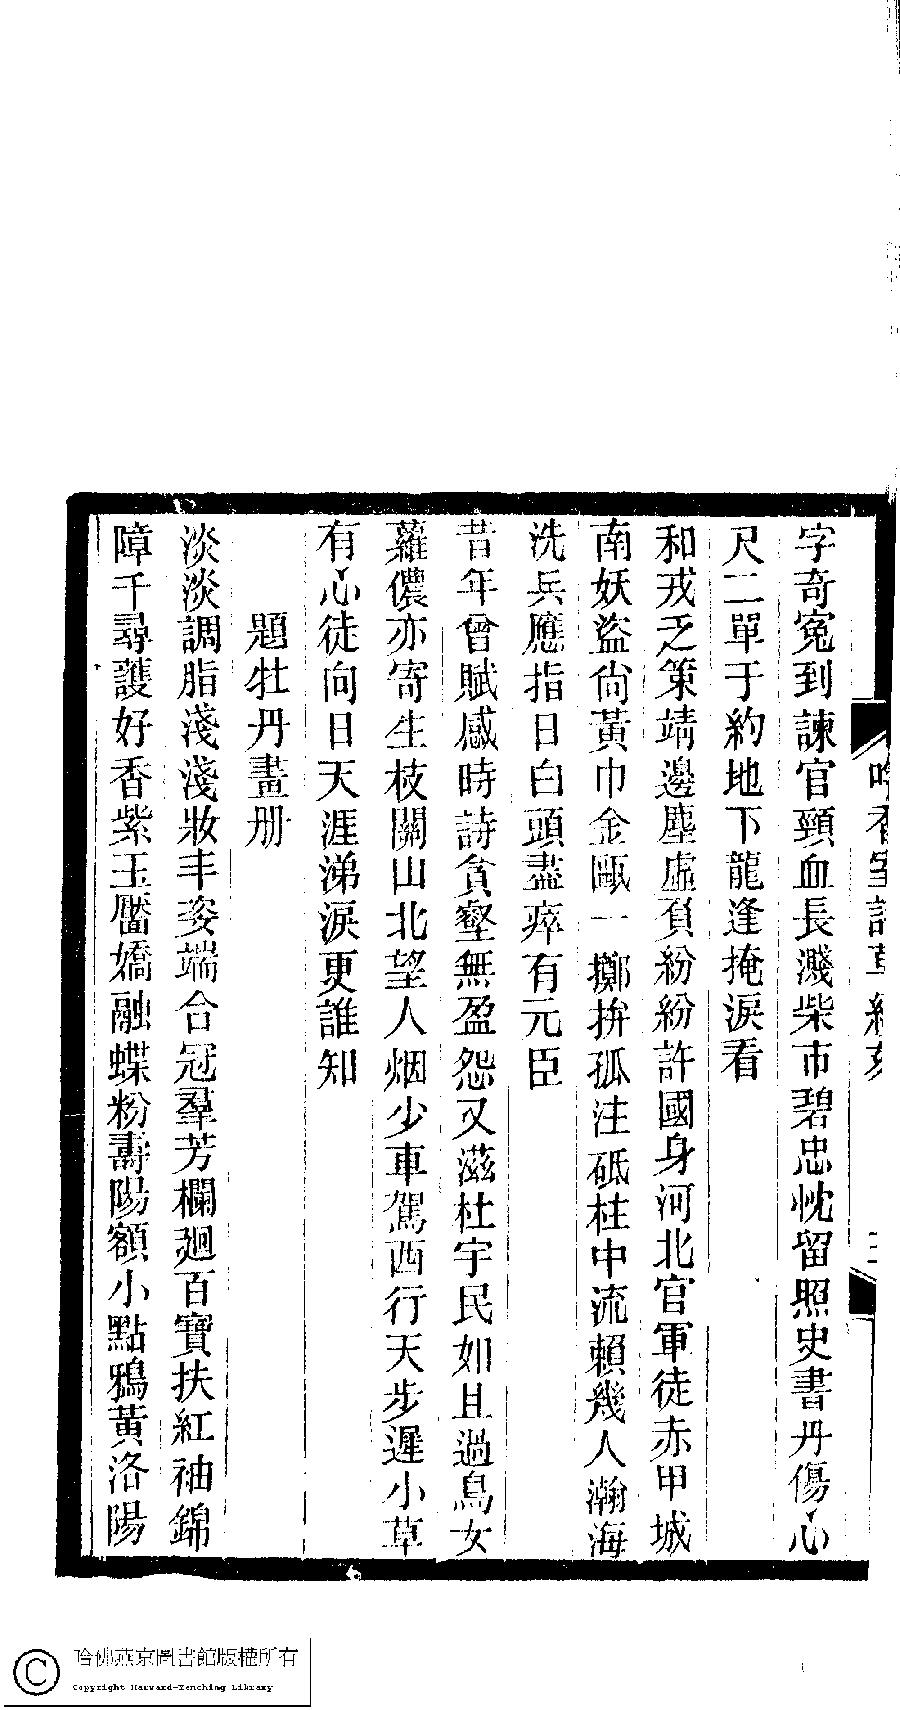 字奇冤到諫官頸血長濺柴市碧忠忱留照史書丹傷心
尺二單于約地下龍逢掩淚看
和戎乏策靖邊塵虛負紛紛許國身河北官軍徒赤甲城
南妖盜尙黃巾金甌一擲拚孤注砥柱中流賴幾人瀚海
洗兵應指日白頭盡瘁有元臣
昔年曾賦感時詩貪壑無盈怨又滋杜宇民如且過鳥女
蘿儂亦寄生枝關山北望人烟少車駕西行天步遲小草
有心徒向日天涯涕淚更誰知
題牡丹畫册
淡淡調脂淺淺妝丰姿端合冠羣芳欄廻百寶扶紅袖錦
障千尋護好香紫玉靨嬌融蝶粉壽陽額小點鴉黃洛陽
哈佛燕京圖書館版權所有
Copyright Harvard-Yenching Library